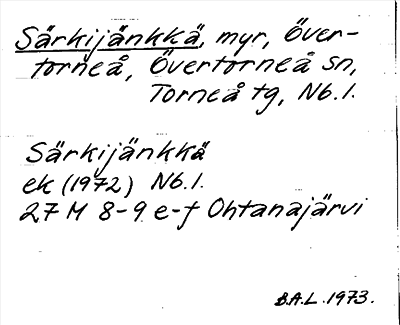 Särkijänkkä, myr, Över-
torneå, Övertorneå sn,
Torneå tg, Nb.l.
Särkijänkkä
ek (1972) Nb.l.
27 M 8-9 e-f Ohtanajärvi
B.A.L. 1973.